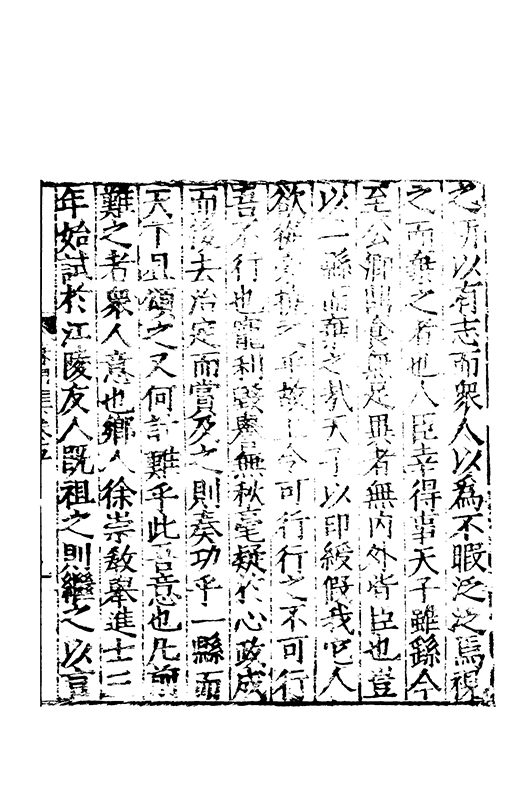 之所以有志而衆人以爲不暇泛泛焉視
之而棄之者也人臣幸得事天子雖縣令
至公卿鼎食無足異者無內外皆臣也豈
以一縣而棄之哉天子以印綬假我吏人
欲 之乎故上令可行行之不可行
吾不行也寵利毀譽無秋毫疑於心政成
而後去治定而賞及之則奏功乎一縣而
天下且頌之又何計難乎此吾意也凡前
難之者衆人意也鄉人徐崇敎舉進士三
年始試於江陵友人旣祖之則繼之以言